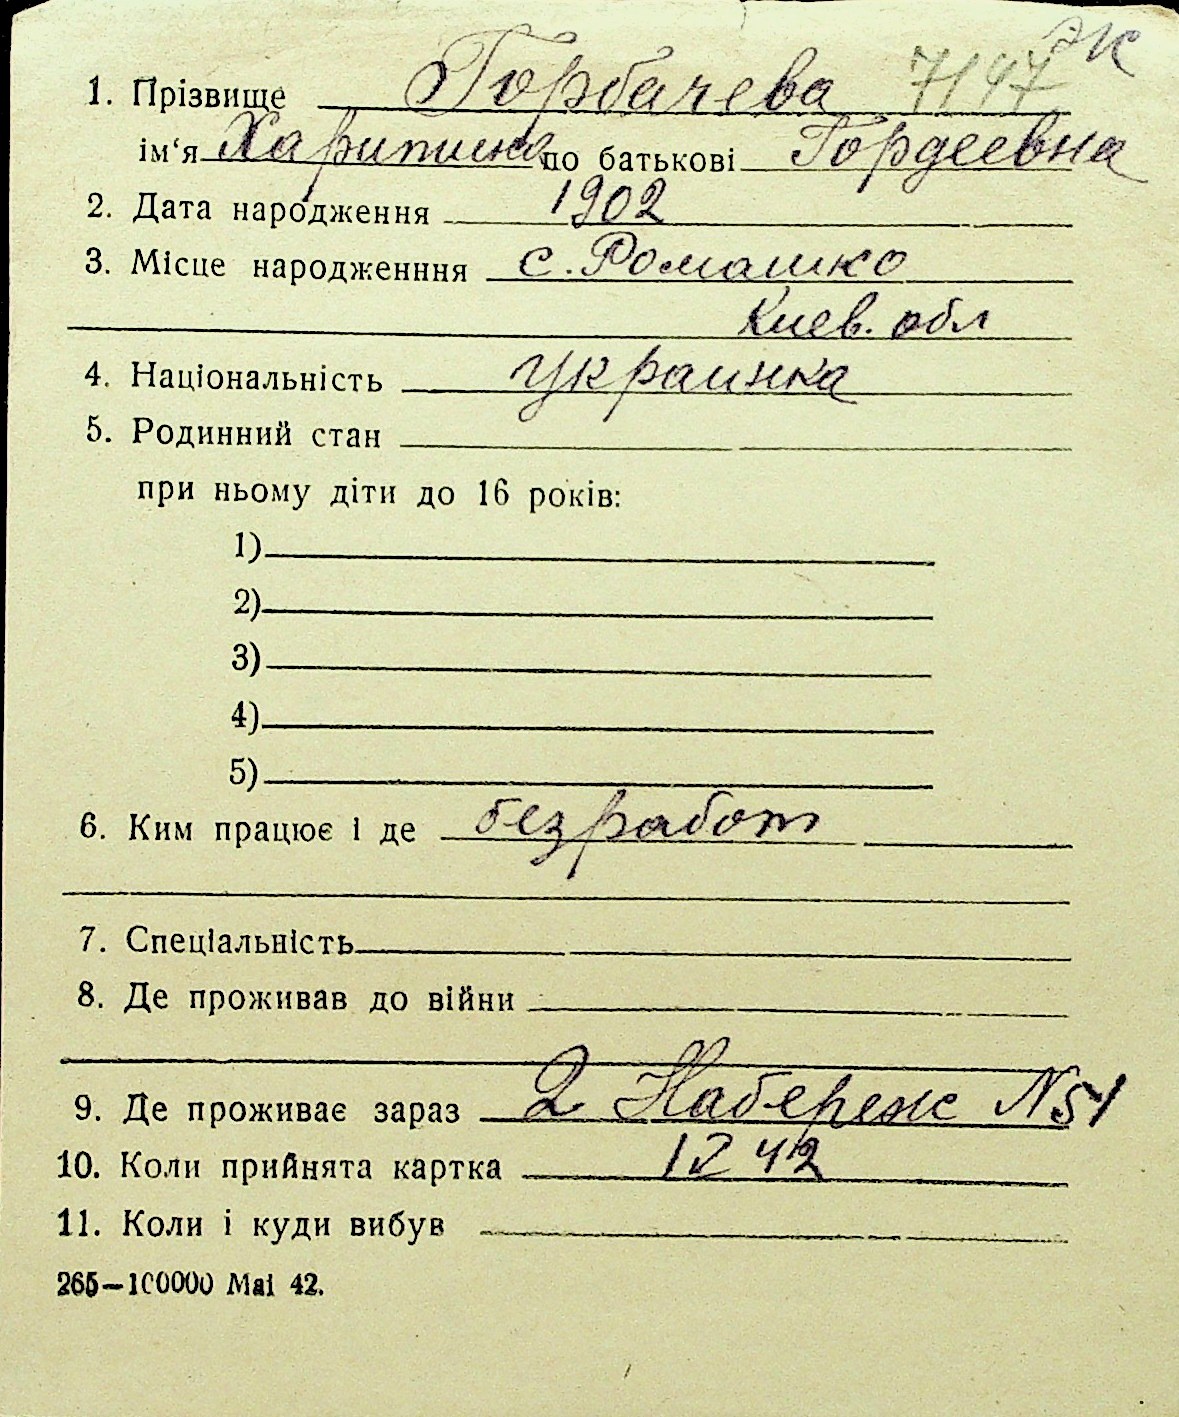 ЖК
1. Прізвище Горбачева 7147
ім'я Харитина по батькові Гордеевна
2. Дата народження 1902
3. Місце народженння с. Ромашко
Киев. обл
4. Національність украинка
5. Родинний стан
при ньому діти до 16 років:
1)
2)
3)
4)
5)
6. Ким працює і де безработ
7. Спеціальність
8. Де проживав до війни
9. Де проживає зараз 2 Набереж N 51
10. Коли прийнята картка 1242
11. Коли і куди вибув
265—100000 Mai 42.